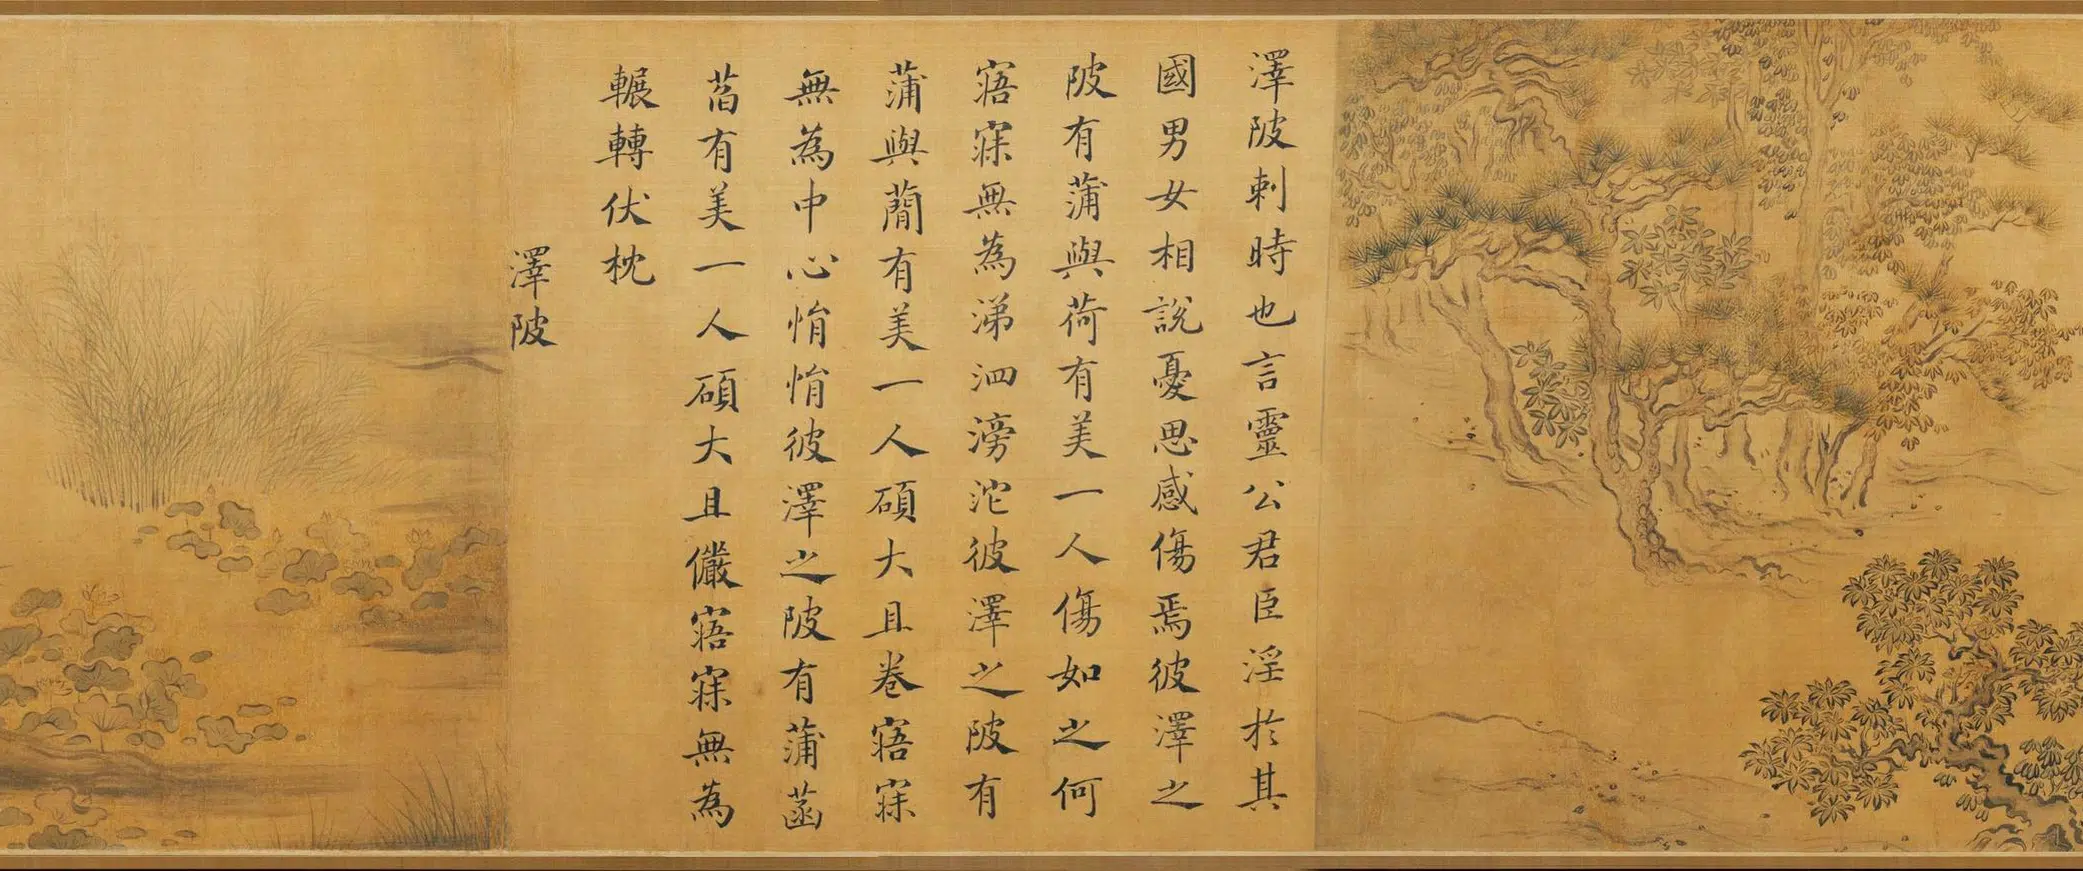 澤陂刺時也言靈公君臣淫於其
國男女相說憂思感傷焉彼澤之
陂有蒲與荷有美一人傷如之何
寤寐無為涕泗滂沱彼澤之陂有
蒲與蕳有美一人碩大且卷寤寐
無為中心悁悁彼澤之陂有蒲菡
萏有美一人碩大且儼寤寐無為
輾轉伏枕
澤陂